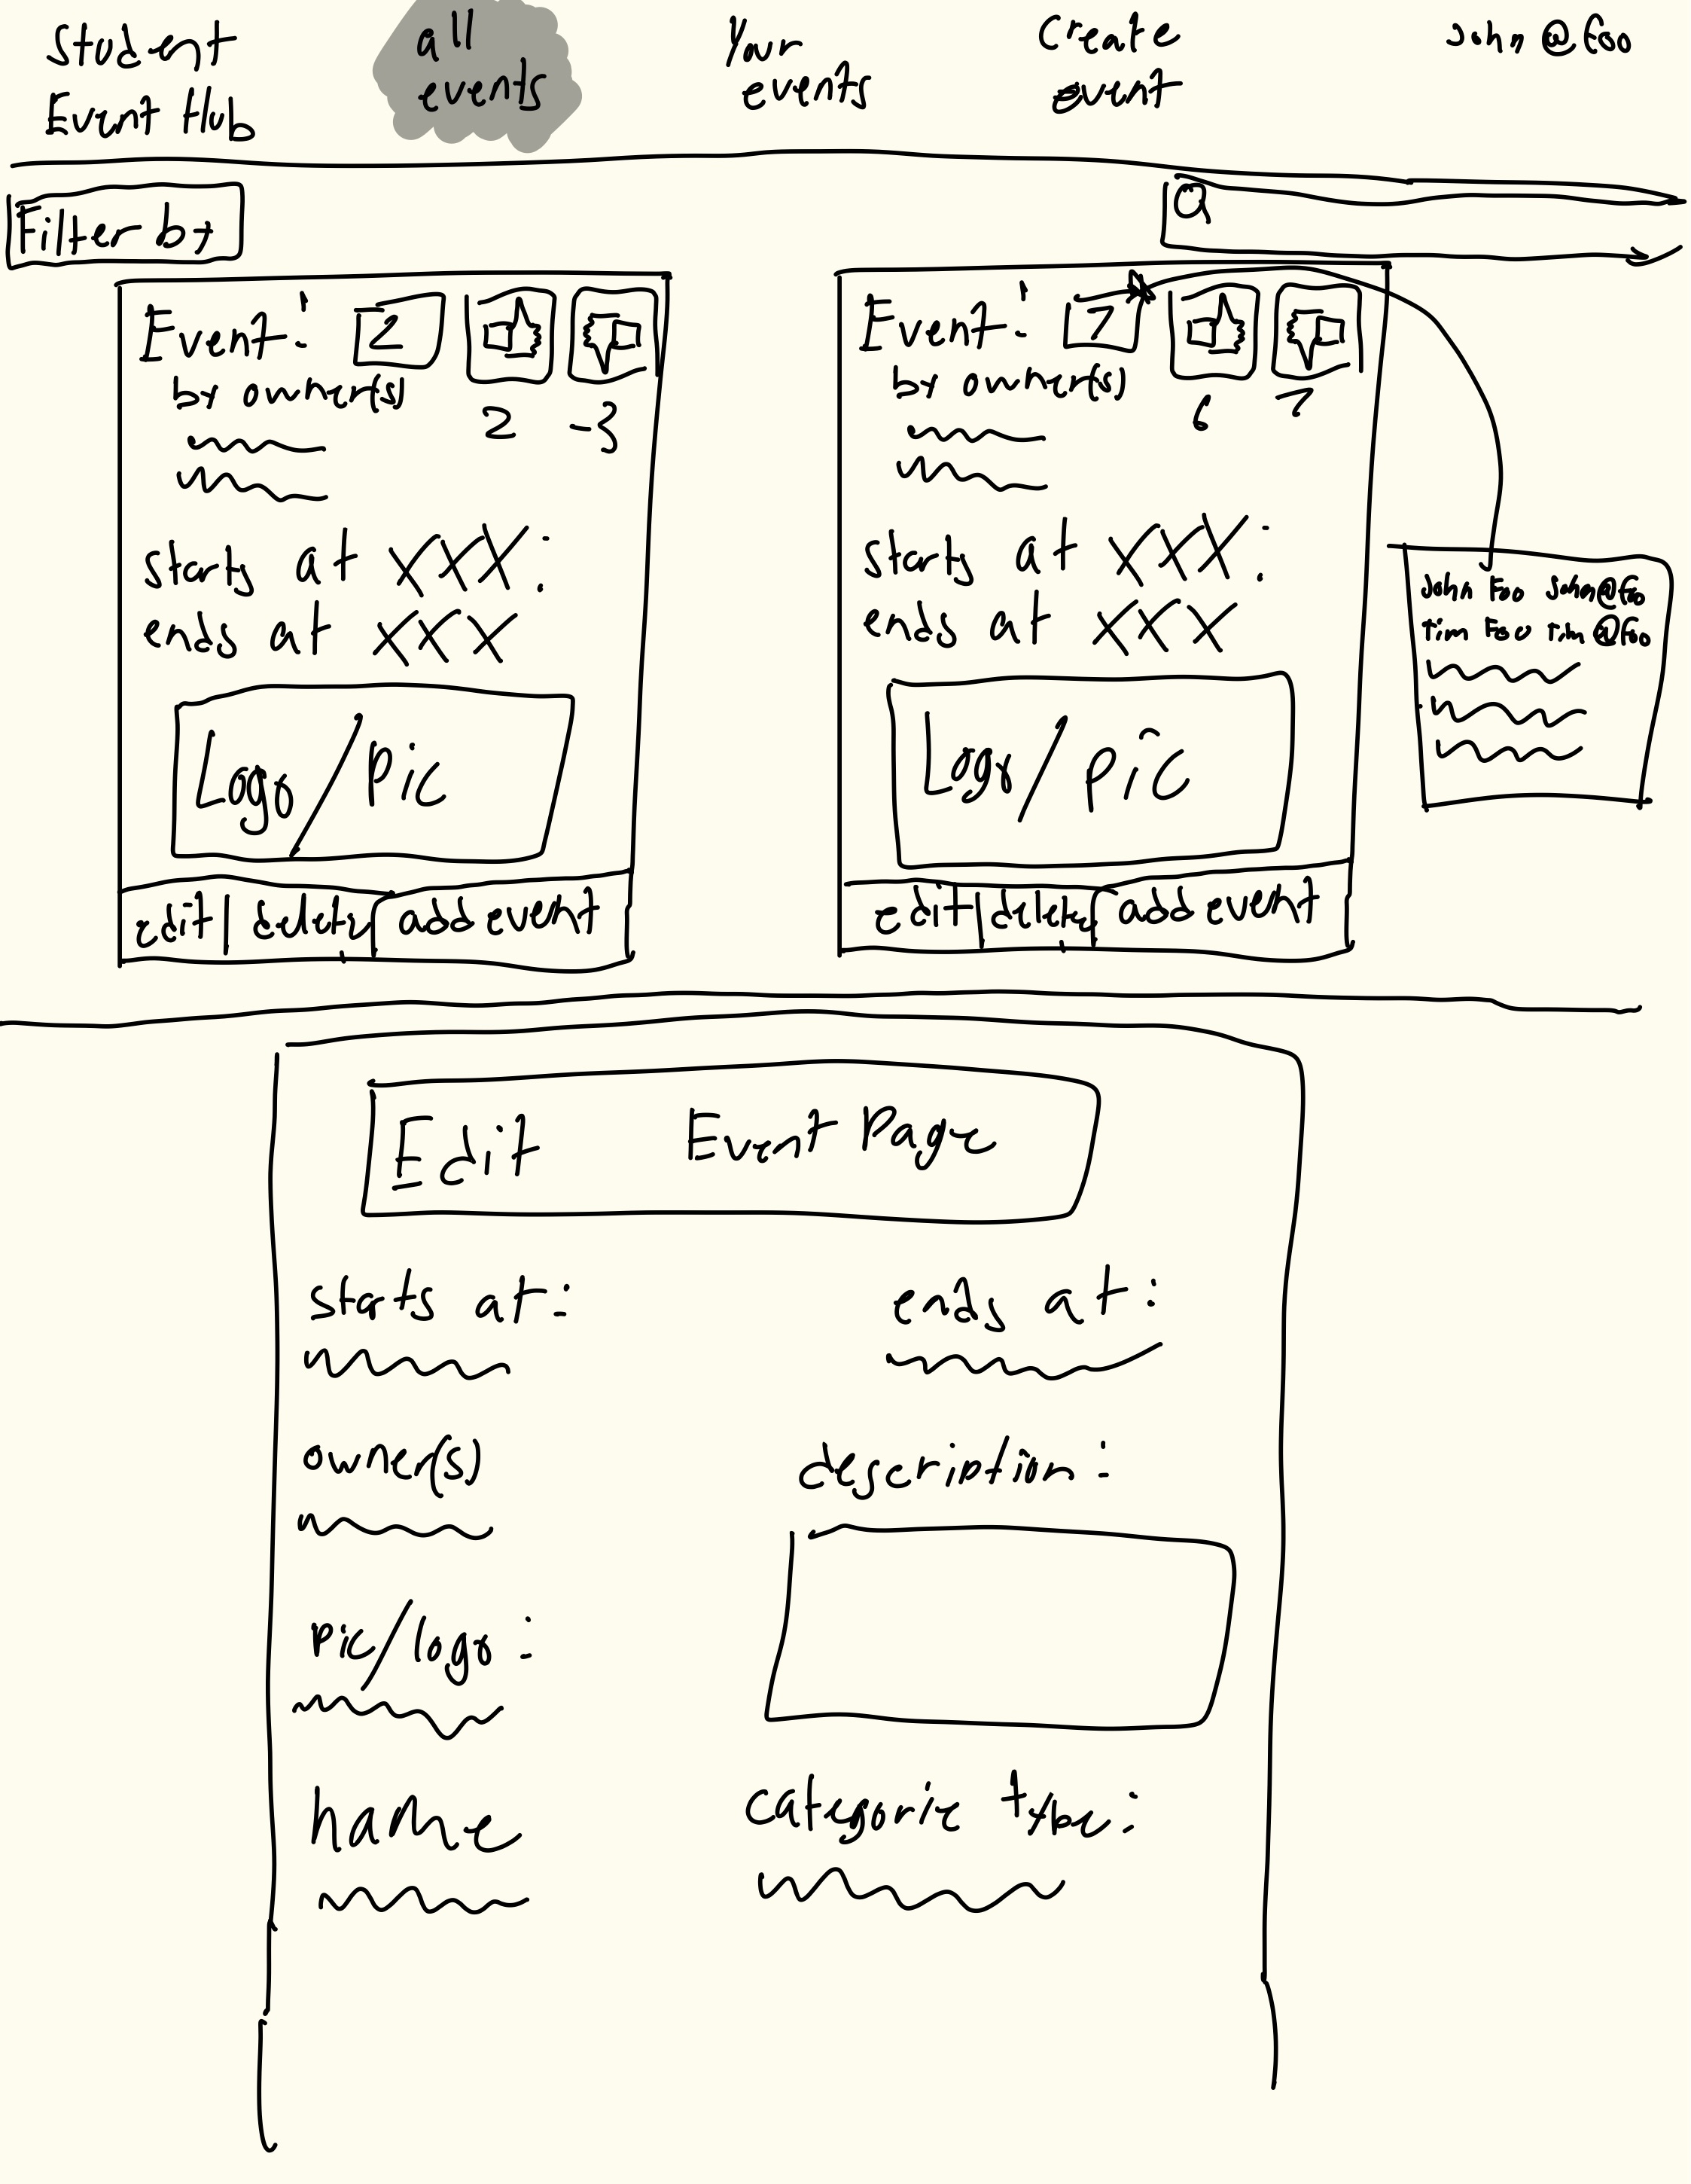 Student
Event Hub
all
events
Your
events
Create
event
John @ foo
Filter by
Event:
2
by owner(s)
2
-3
starts at XXX:
ends at XXX
Logo/Pic
edit
delete
add event
Event:
7
by owner(s)
6
7
starts at XXX:
ends at XXX
Logo/Pic
edit
delete
add event
John Foo John@foo
Tim Foo Tim@foo
Edit Event Page
starts at:
ends at:
owner(s)
description:
pic/logo:
name
categorie type: